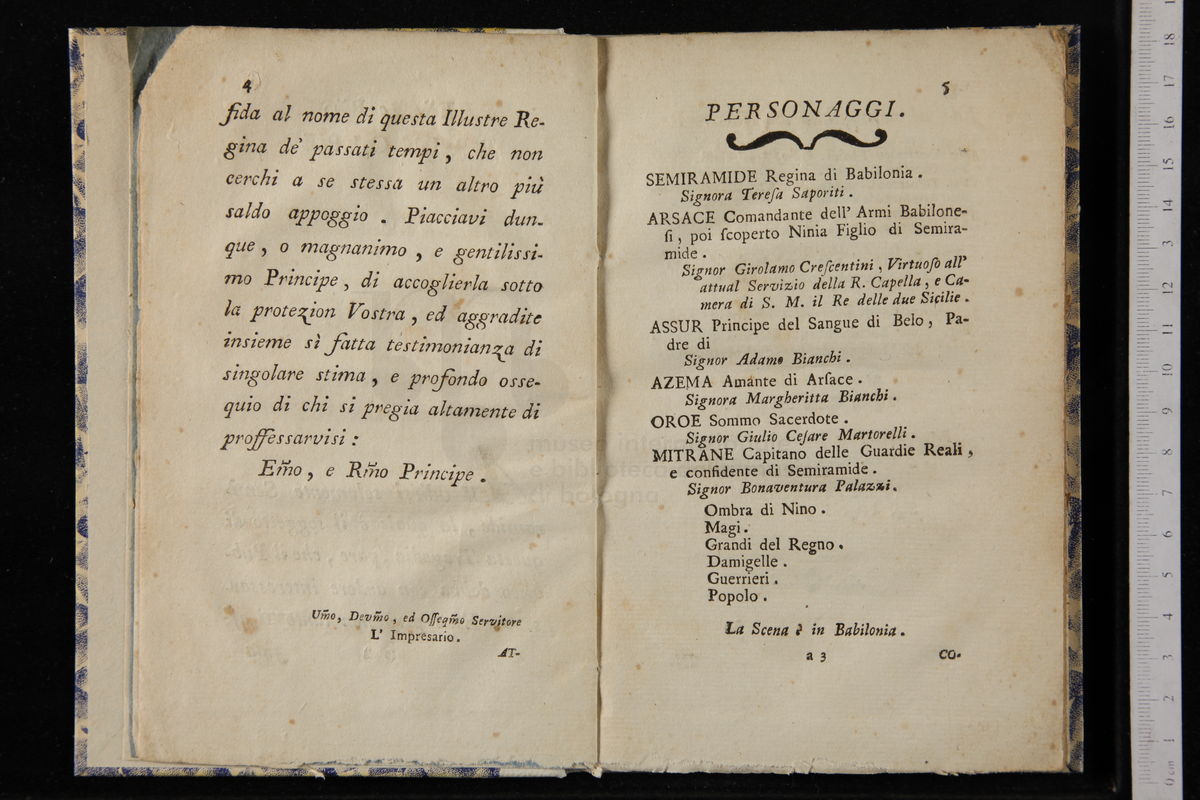 4
fida al nome di questa Illustre Re-
gina de' passati tempi, che non
cerchi a se stessa un altro più
saldo appoggio. Piacciavi dun-
que, o magnanimo, e gentilissi-
mo Principe, di accoglierla sotto
la protezion Vostra, ed aggradite
insieme sì fatta testimonianza di
singolare stima, e profondo osse-
quio di chi si pregia altamente di
proffessarvisi:
Em̃o, e Rm̃o Principe.
Um̃o, Devm̃o, ed Oſſeqm̃o Servitore
L' Impresario.
AT-
5
PERSONAGGI.
SEMIRAMIDE Regina di Babilonia.
Signora Tereſa Saporiti.
ARSACE Comandante dell' Armi Babilone-
ſi, poi ſcoperto Ninia Figlio di Semira-
mide.
Signor Girolamo Creſcentini, Virtuoſo all'
attual Servizio della R. Capella, e Ca-
mera di S. M. il Re delle due Sicilie.
ASSUR Principe del Sangue di Belo, Pa-
dre di
Signor Adamo Bianchi.
AZEMA Amante di Arſace.
Signora Margheritta Bianchi.
OROE Sommo Sacerdote.
Signor Giulio Ceſare Martorelli.
MITRANE Capitano delle Guardie Reali,
e confidente di Semiramide.
Signor Bonaventura Palazzi.
Ombra di Nino.
Magi.
Grandi del Regno.
Damigelle.
Guerrieri.
Popolo.
La Scena è in Babilonia.
a 3
CO-
museo inter
e biblioteca
di bologna